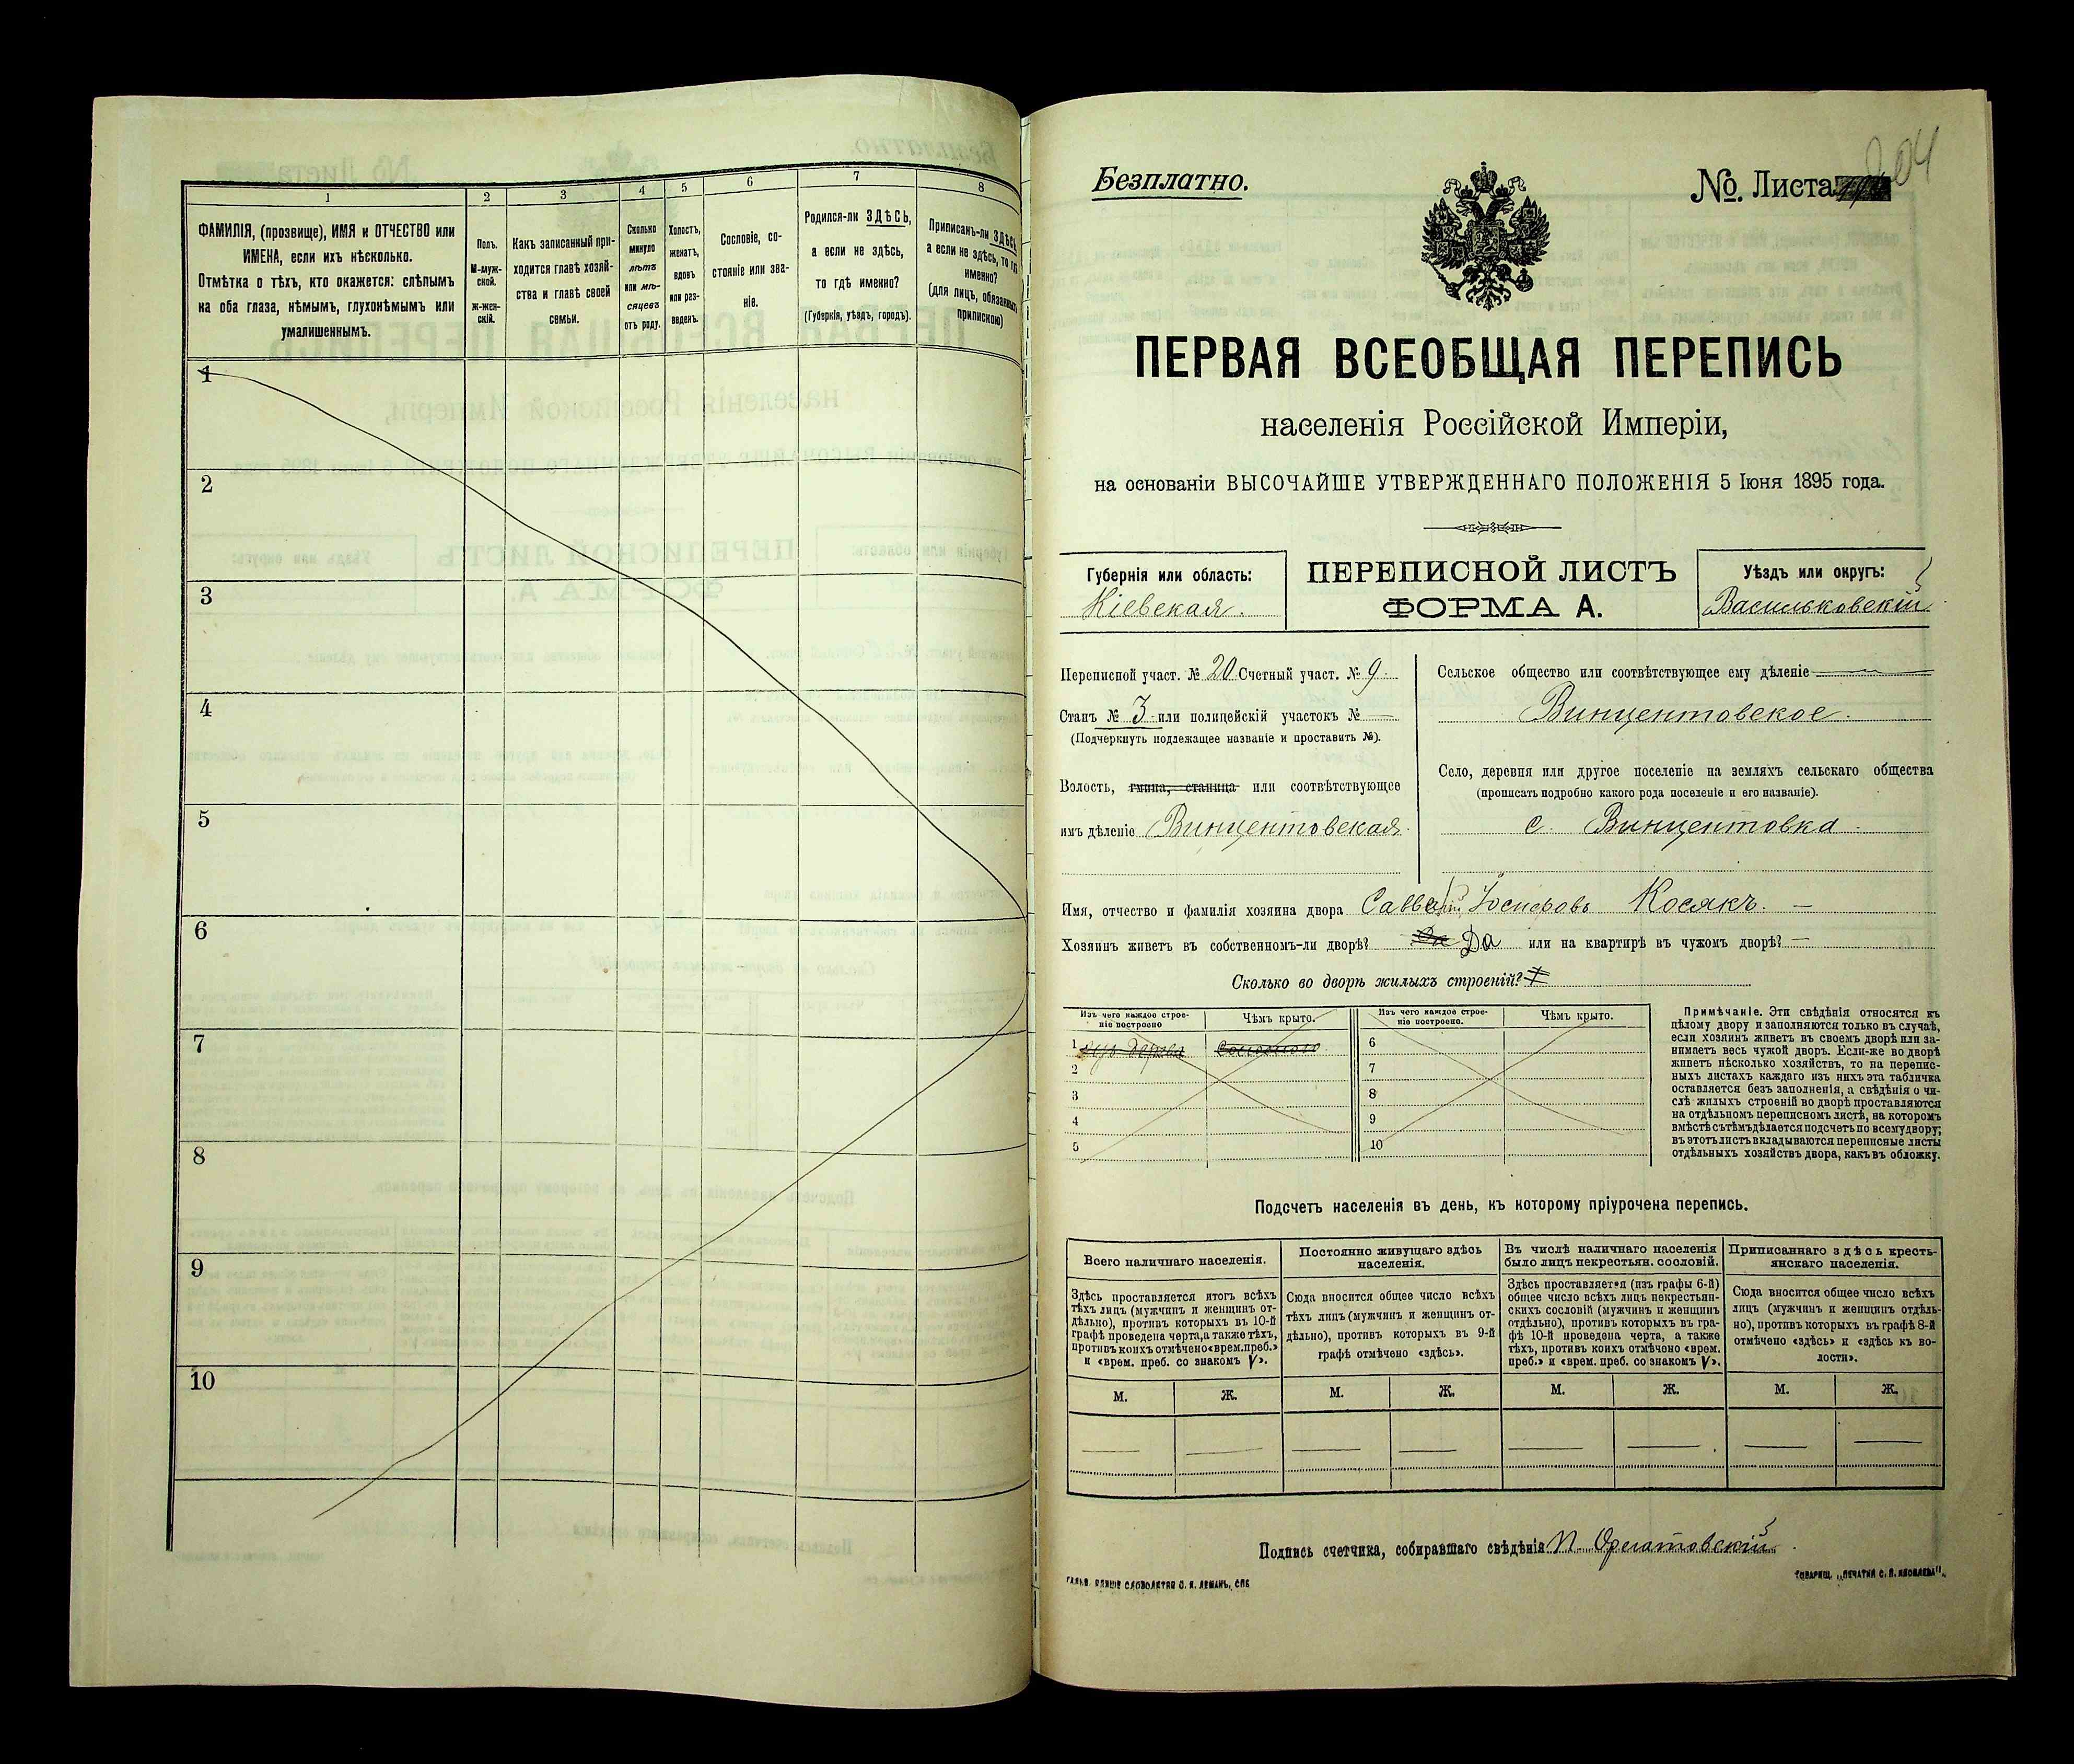 1
2
3
4
5
6
7
8
ФАМИЛІЯ, (прозвище), ИМЯ и ОТЧЕСТВО или
ИМЕНА, если ихъ нѣсколько.
Отмѣтка о тѣхъ, кто окажется: слѣпымъ
на оба глаза, нѣмымъ, глухонѣмымъ или
умалишеннымъ.
Полъ.
М-муж-
ской.
Ж-жен-
скій.
Какъ записанный при-
ходится главѣ хозяй-
ства и главѣ своей
семьи.
Сколько
минуло
лѣтъ
или мѣ-
сяцевъ
отъ роду.
Холостъ,
женатъ,
вдовъ
или раз-
веденъ.
Сословіе, со-
стояніе или зва-
ніе.
Родился-ли ЗДѢСЬ,
а если не здѣсь,
то гдѣ именно?
(Губернія, уѣздъ, городъ).
Приписанъ-ли ЗДѢСЬ,
а если не здѣсь, то гдѣ
именно?
(для лицъ, обязанныхъ
припискою)
1
2
3
4
5
6
7
8
9
10
Безплатно.
№. Листа
204
ПЕРВАЯ ВСЕОБЩАЯ ПЕРЕПИСЬ
населенія Россійской Имперіи,
на основаніи ВЫСОЧАЙШЕ УТВЕРЖДЕННАГО ПОЛОЖЕНІЯ 5 Іюня 1895 года.
Губернія или область:
Кіевская.
ПЕРЕПИСНОЙ ЛИСТЪ
ФОРМА А.
Уѣздъ или округъ:
Васильковскій
Переписной участ. № 20 Счетный участ. № 9
Станъ № 3 или полицейскій участокъ № —
(Подчеркнуть подлежащее названіе и проставить №).
Волость, гмина, станица или соотвѣтствующее
имъ дѣленіе Винцентовская.
Сельское общество или соотвѣтствующее ему дѣленіе
Винцентовское.
Село, деревня или другое поселеніе на земляхъ сельскаго общества
(прописать подробно какого рода поселеніе и его названіе).
с. Винцентовка.
Имя, отчество и фамилія хозяина двора Іосифовъ Косякъ. —
Хозяинъ живетъ въ собственномъ-ли дворѣ? Да Да или на квартирѣ въ чужомъ дворѣ? —
Сколько во дворѣ жилыхъ строеній?
Изъ чего каждое строе-
ніе построено
Чѣмъ крыто.
Изъ чего каждое строе-
ніе построено.
Чѣмъ крыто.
1 изъ дерева соломою
2
3
4
5
6
7
8
9
10
Примѣчаніе. Эти свѣдѣнія относятся къ
цѣлому двору и заполняются только въ случаѣ,
если хозяинъ живетъ въ своемъ дворѣ или за-
нимаетъ весь чужой дворъ. Если-же во дворѣ
живетъ нѣсколько хозяйствъ, то на перепис-
ныхъ листахъ каждаго изъ нихъ эта табличка
оставляется безъ заполненія, а свѣдѣнія о чи-
слѣ жилыхъ строеній во дворѣ проставляются
на отдѣльномъ переписномъ листѣ, на которомъ
вмѣстѣ съ тѣмъ дѣлается подсчетъ по всему двору;
въ этотъ листъ вкладываются переписные листы
отдѣльныхъ хозяйствъ двора, какъ въ обложку.
Подсчетъ населенія въ день, къ которому пріурочена перепись.
Всего наличнаго населенія.
Здѣсь проставляется итогъ всѣхъ
тѣхъ лицъ (мужчинъ и женщинъ от-
дѣльно), противъ которыхъ въ 10-й
графѣ проведена черта, а также тѣхъ,
противъ коихъ отмѣчено «врем. преб.»
и «врем. преб. со знакомъ V».
Постоянно живущаго здѣсь
населенія.
Сюда вносится общее число всѣхъ
тѣхъ лицъ (мужчинъ и женщинъ от-
дѣльно), противъ которыхъ въ 9-й
графѣ отмѣчено «здѣсь».
Въ числѣ наличнаго населенія
было лицъ некрестьян. сословій.
Здѣсь проставляется (изъ графы 6-й)
общее число всѣхъ лицъ некрестьян-
скихъ сословій (мужчинъ и женщинъ
отдѣльно), противъ которыхъ въ гра-
фѣ 10-й проведена черта, а также
тѣхъ, противъ коихъ отмѣчено «врем.
преб.» и «врем. преб. со знакомъ V».
Приписаннаго здѣсь кресть-
янскаго населенія.
Сюда вносится общее число всѣхъ
лицъ (мужчинъ и женщинъ отдѣль-
но), противъ которыхъ въ графѣ 8-й
отмѣчено «здѣсь» и «здѣсь къ во-
лости».
М. Ж. М. Ж. М. Ж. М. Ж.
— — — — — — — —
Подпись счетчика, собиравшаго свѣдѣнія
СЛОВОЛИТНЯ О. И. ЛЕМАНЪ, СПБ
ТОВАРИЩ. „ПЕЧАТНЯ С. П. ЯКОВЛЕВА".